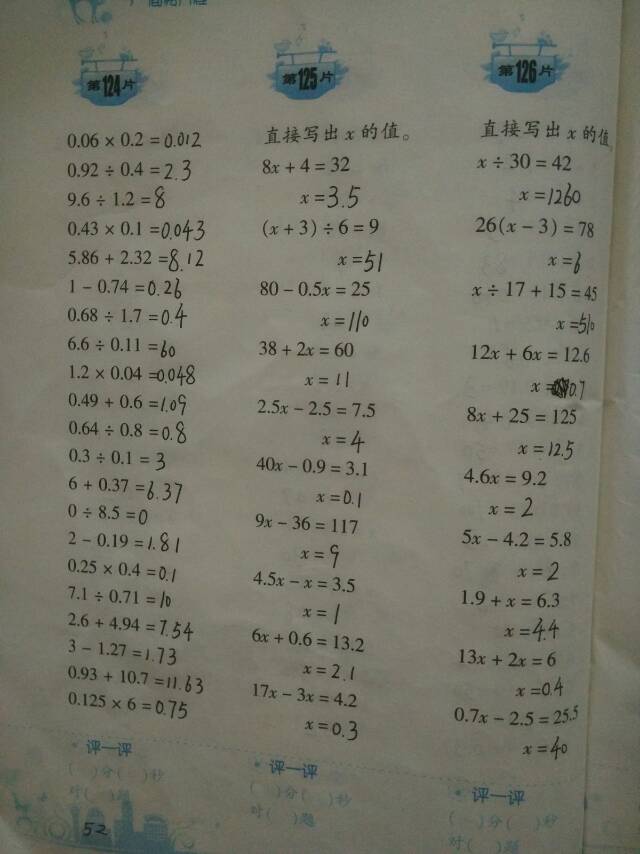 第124片
0.06 × 0.2 = 0.012
0.92 ÷ 0.4 = 2.3
9.6 ÷ 1.2 = 8
0.43 × 0.1 = 0.043
5.86 + 2.32 = 8.12
1 − 0.74 = 0.26
0.68 ÷ 1.7 = 0.4
6.6 ÷ 0.11 = 60
1.2 × 0.04 = 0.048
0.49 + 0.6 = 1.09
0.64 ÷ 0.8 = 0.8
0.3 ÷ 0.1 = 3
6 + 0.37 = 6.37
0 ÷ 8.5 = 0
2 − 0.19 = 1.81
0.25 × 0.4 = 0.1
7.1 ÷ 0.71 = 10
2.6 + 4.94 = 7.54
3 − 1.27 = 1.73
0.93 + 10.7 = 11.63
0.125 × 6 = 0.75
评一评
( )分( )秒
对( )题
52
第125片
直接写出 x 的值。
8x + 4 = 32
x = 3.5
(x + 3) ÷ 6 = 9
x = 51
80 − 0.5x = 25
x = 110
38 + 2x = 60
x = 11
2.5x − 2.5 = 7.5
x = 4
40x − 0.9 = 3.1
x = 0.1
9x − 36 = 117
x = 9
4.5x − x = 3.5
x = 1
6x + 0.6 = 13.2
x = 2.1
17x − 3x = 4.2
x = 0.3
评一评
( )分( )秒
对( )题
第126片
直接写出 x 的值
x ÷ 30 = 42
x = 1260
26(x − 3) = 78
x = 6
x ÷ 17 + 15 = 45
x = 510
12x + 6x = 12.6
x = 0.7
8x + 25 = 125
x = 12.5
4.6x = 9.2
x = 2
5x − 4.2 = 5.8
x = 2
1.9 + x = 6.3
x = 4.4
13x + 2x = 6
x = 0.4
0.7x − 2.5 = 25.5
x = 40
评一评
( )分( )秒
对( )题